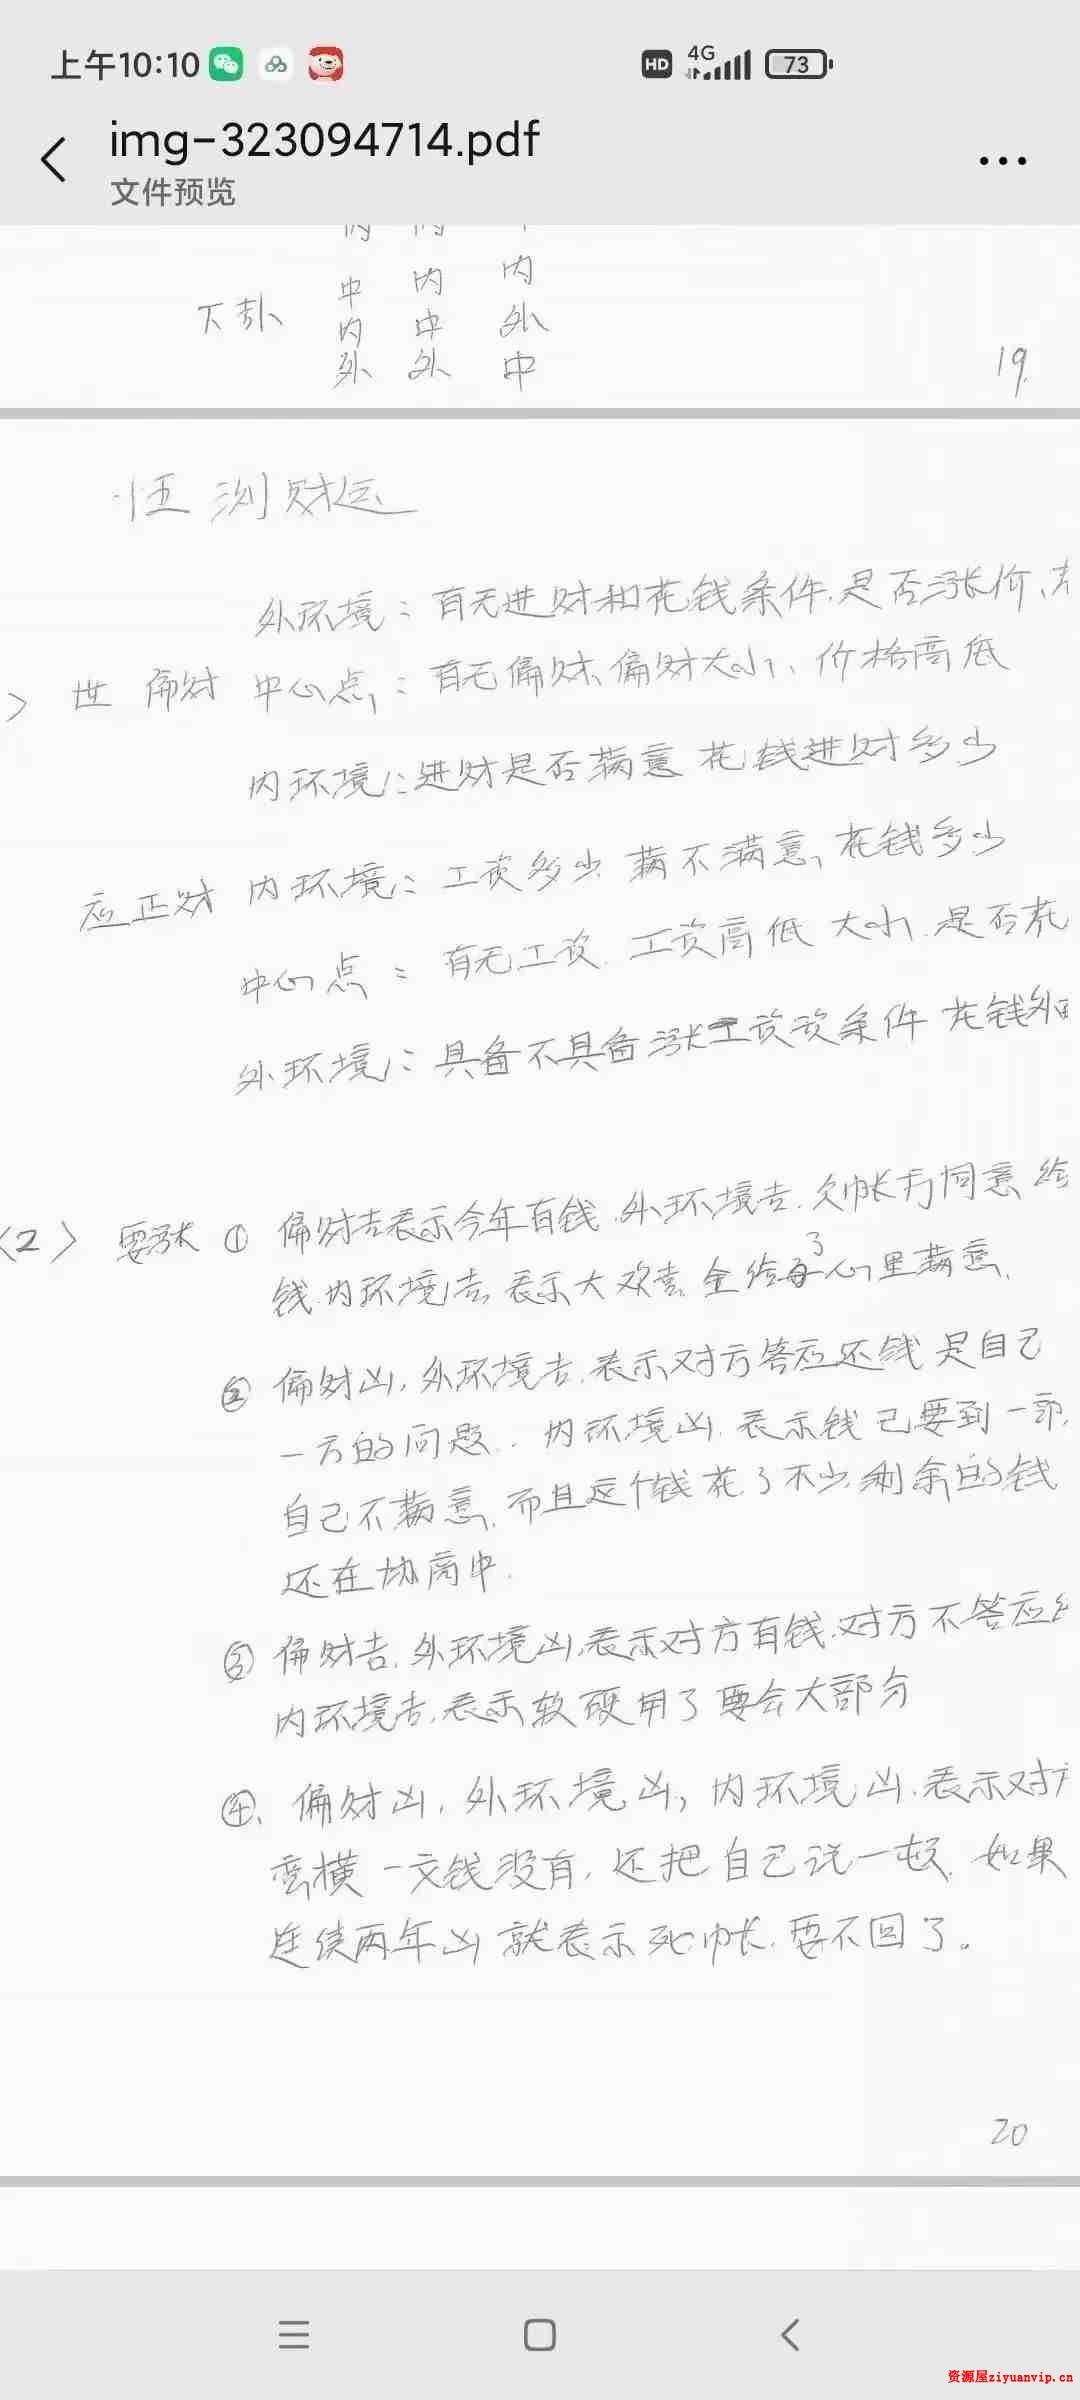 上午10:10
HD 4G 73
img-323094714.pdf
文件预览
内 内 中
下卦
中 内 内
内 中 外
外 外 中
19.
测财运
外环境：有无进财和花钱条件.是否涨价、
世 偏财 中心点：有无偏财、偏财大小、价格高低
内环境：进财是否满意 花钱进财多少
应正财 内环境：工资多少 满不满意、花钱多少
中心点：有无工资.工资高低 大小.是否花
外环境：具备不具备涨工资资条件 花钱外
<2> 要账 ① 偏财吉表示今年有钱.外环境吉.欠帐方同意给
钱.内环境吉.表示大欢喜.全给了心里满意.
② 偏财凶,外环境吉.表示对方答应还钱 是自己
一方的问题.内环境凶.表示钱已要到一部
自己不满意.而且这个钱花了不少.剩余的钱
还在协商中.
③ 偏财吉.外环境凶.表示对方有钱.对方不答应给
内环境吉.表示软硬用了要会大部分
④、偏财凶,外环境凶,内环境凶.表示对方
蛮横一文钱没有,还把自己说一顿.如果
连续两年凶就表示死帐.要不回了。
20
资源屋ziyuanvip.cn